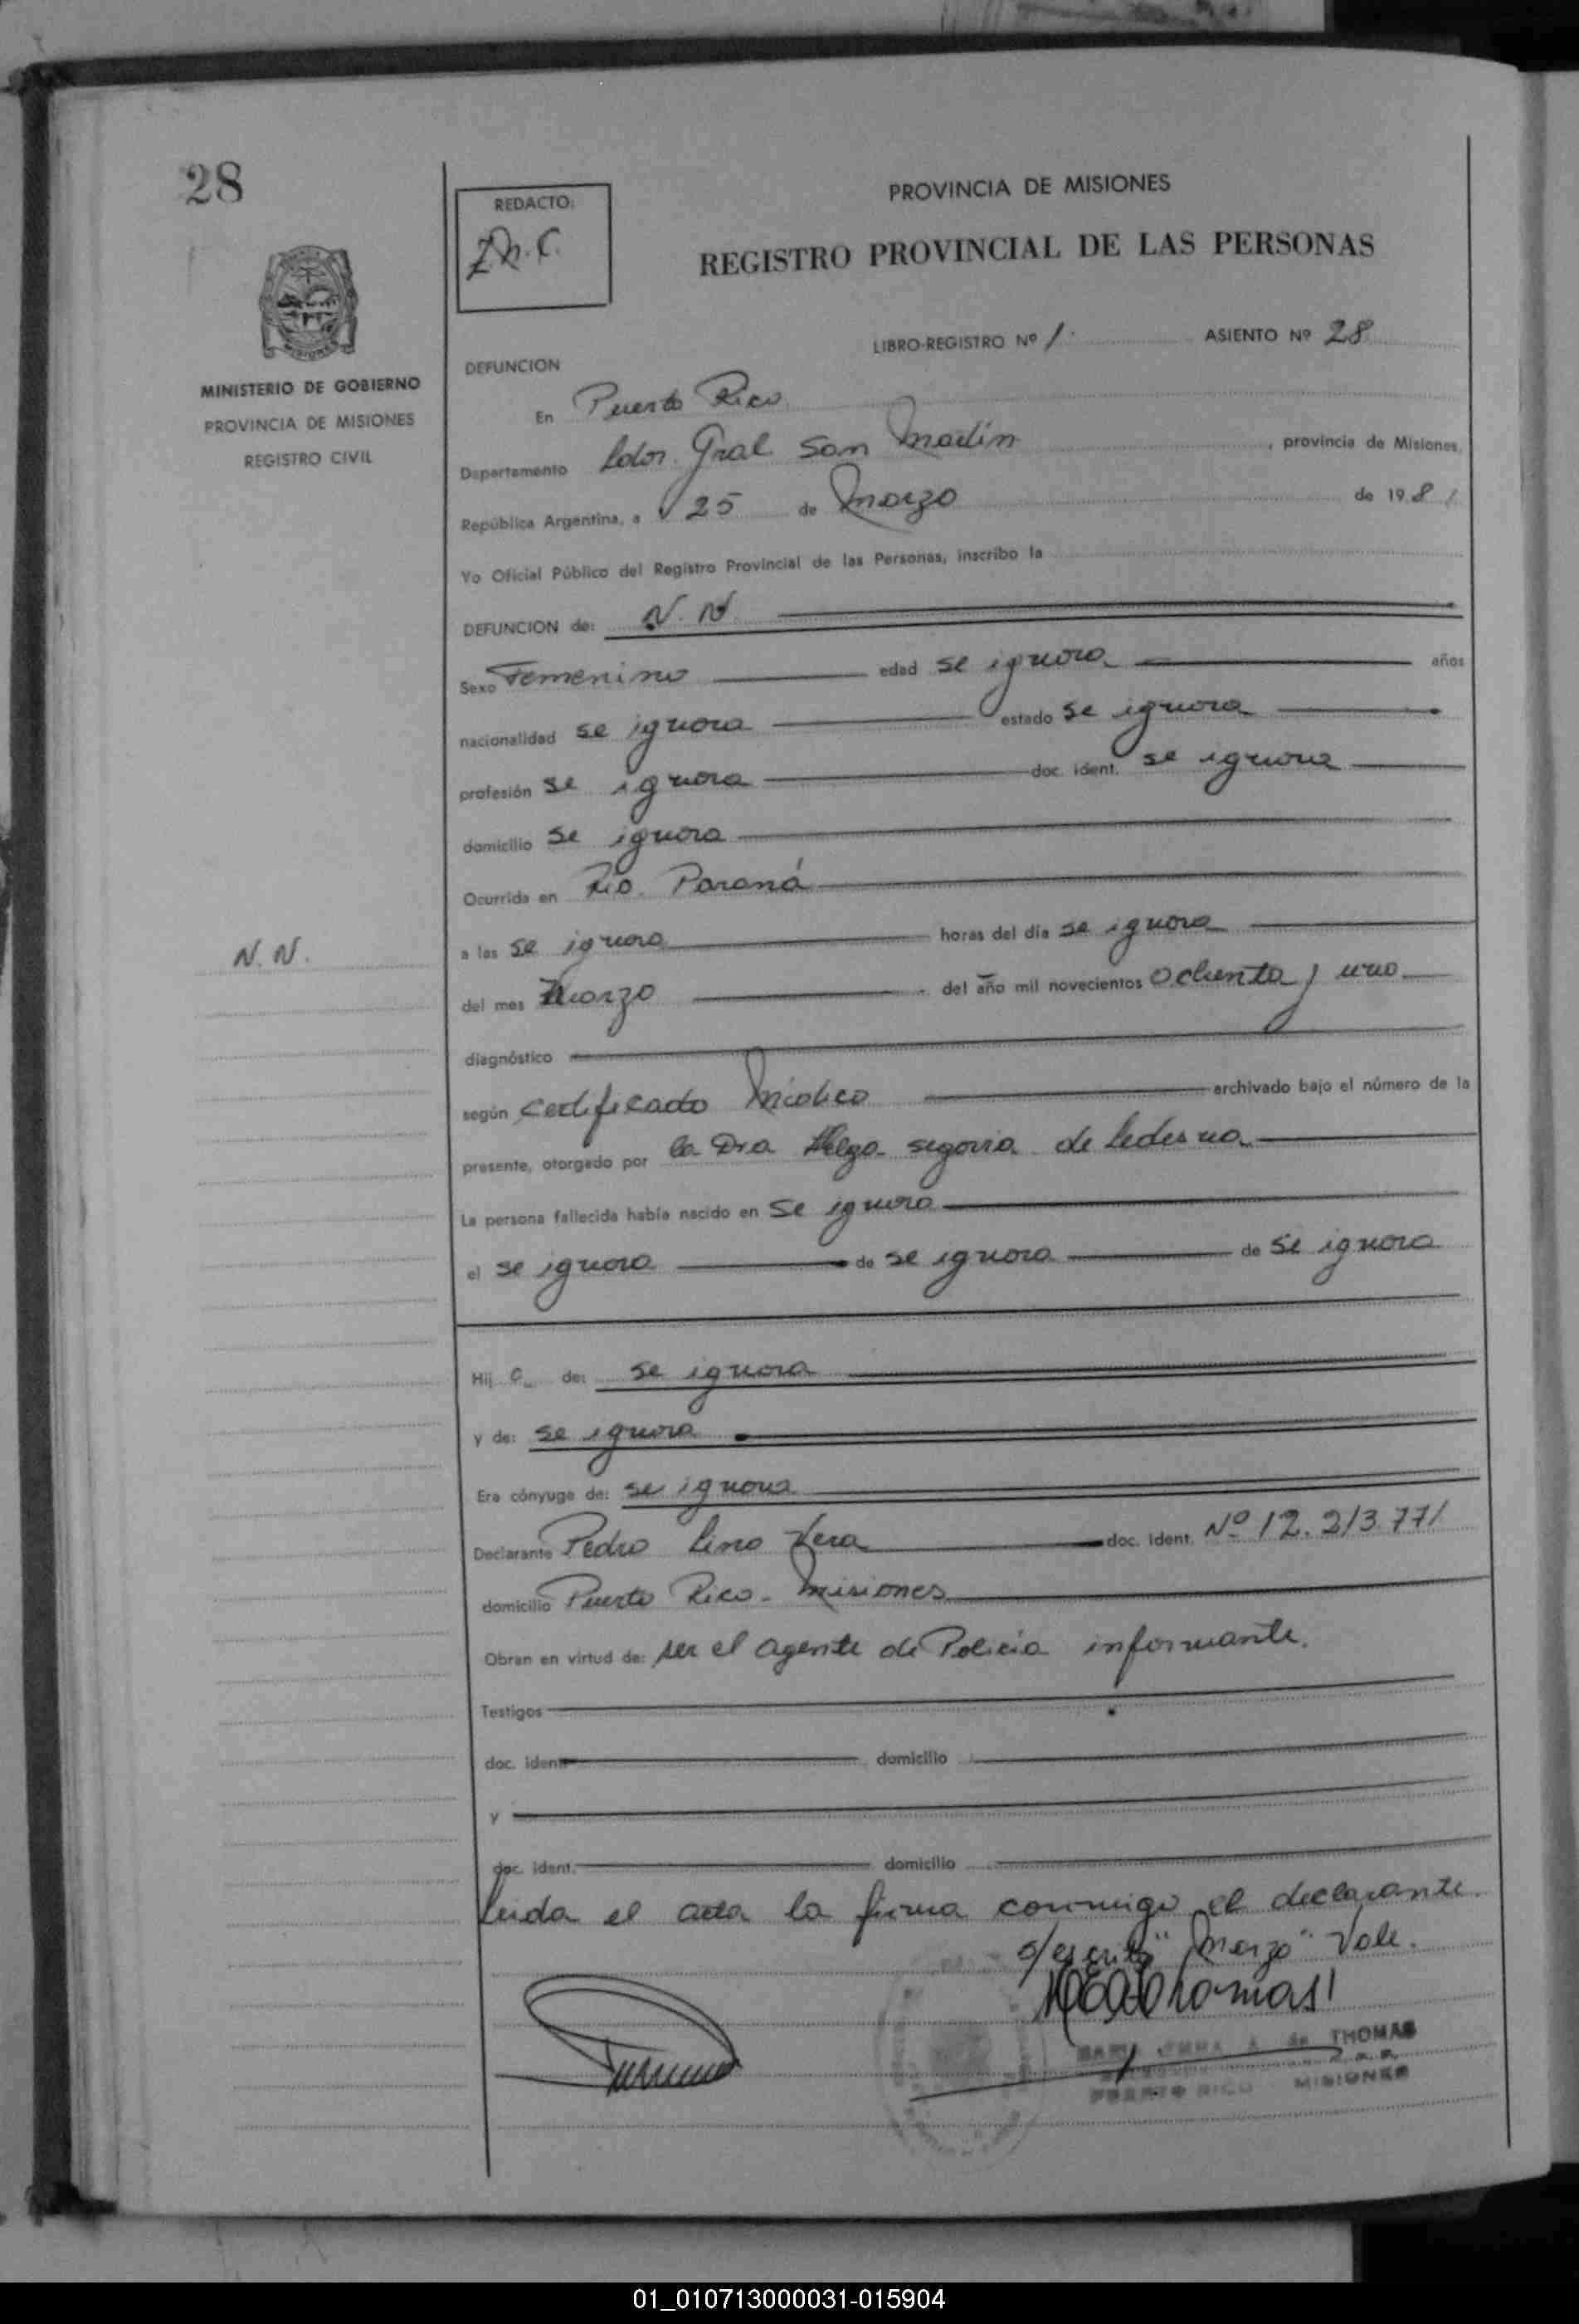 28
REDACTO:
PROVINCIA DE MISIONES
REGISTRO PROVINCIAL DE LAS PERSONAS
MISIONES
MINISTERIO DE GOBIERNO
PROVINCIA DE MISIONES
REGISTRO CIVIL
LIBRO-REGISTRO Nº 1. ASIENTO Nº 28
DEFUNCION
En Puerto Rico
Departamento Ldor. Gral San Martín, provincia de Misiones,
República Argentina, a 25 de Marzo de 1981
Yo Oficial Público del Registro Provincial de las Personas, inscribo la
DEFUNCION de: N. N.
Sexo Femenino edad se ignora años
nacionalidad se ignora estado se ignora
profesión se ignora doc. ident. se ignora
domicilio se ignora
Ocurrida en Río Paraná
N. N.
a las se ignora horas del día se ignora
del mes Marzo del año mil novecientos ochenta y uno
diagnóstico
según Certificado Médico archivado bajo el número de la
presente, otorgado por la Dra Helga Segovia de Ledesma
La persona fallecida había nacido en se ignora
el se ignora de se ignora de se ignora
Hij a de: se ignora
y de: se ignora
Era cónyuge de: se ignora
Declarante Pedro Lino Vera doc. ident. Nº 12.213.771
domicilio Puerto Rico - Misiones
Obran en virtud de: ser el agente de Policía informante.
Testigos
doc. ident. domicilio
y
doc. ident. domicilio
Leída el acta la firma conmigo el declarante.
s/escrito "Marzo" Vale.
THOMAS
PUERTO RICO MISIONES
01_010713000031-015904